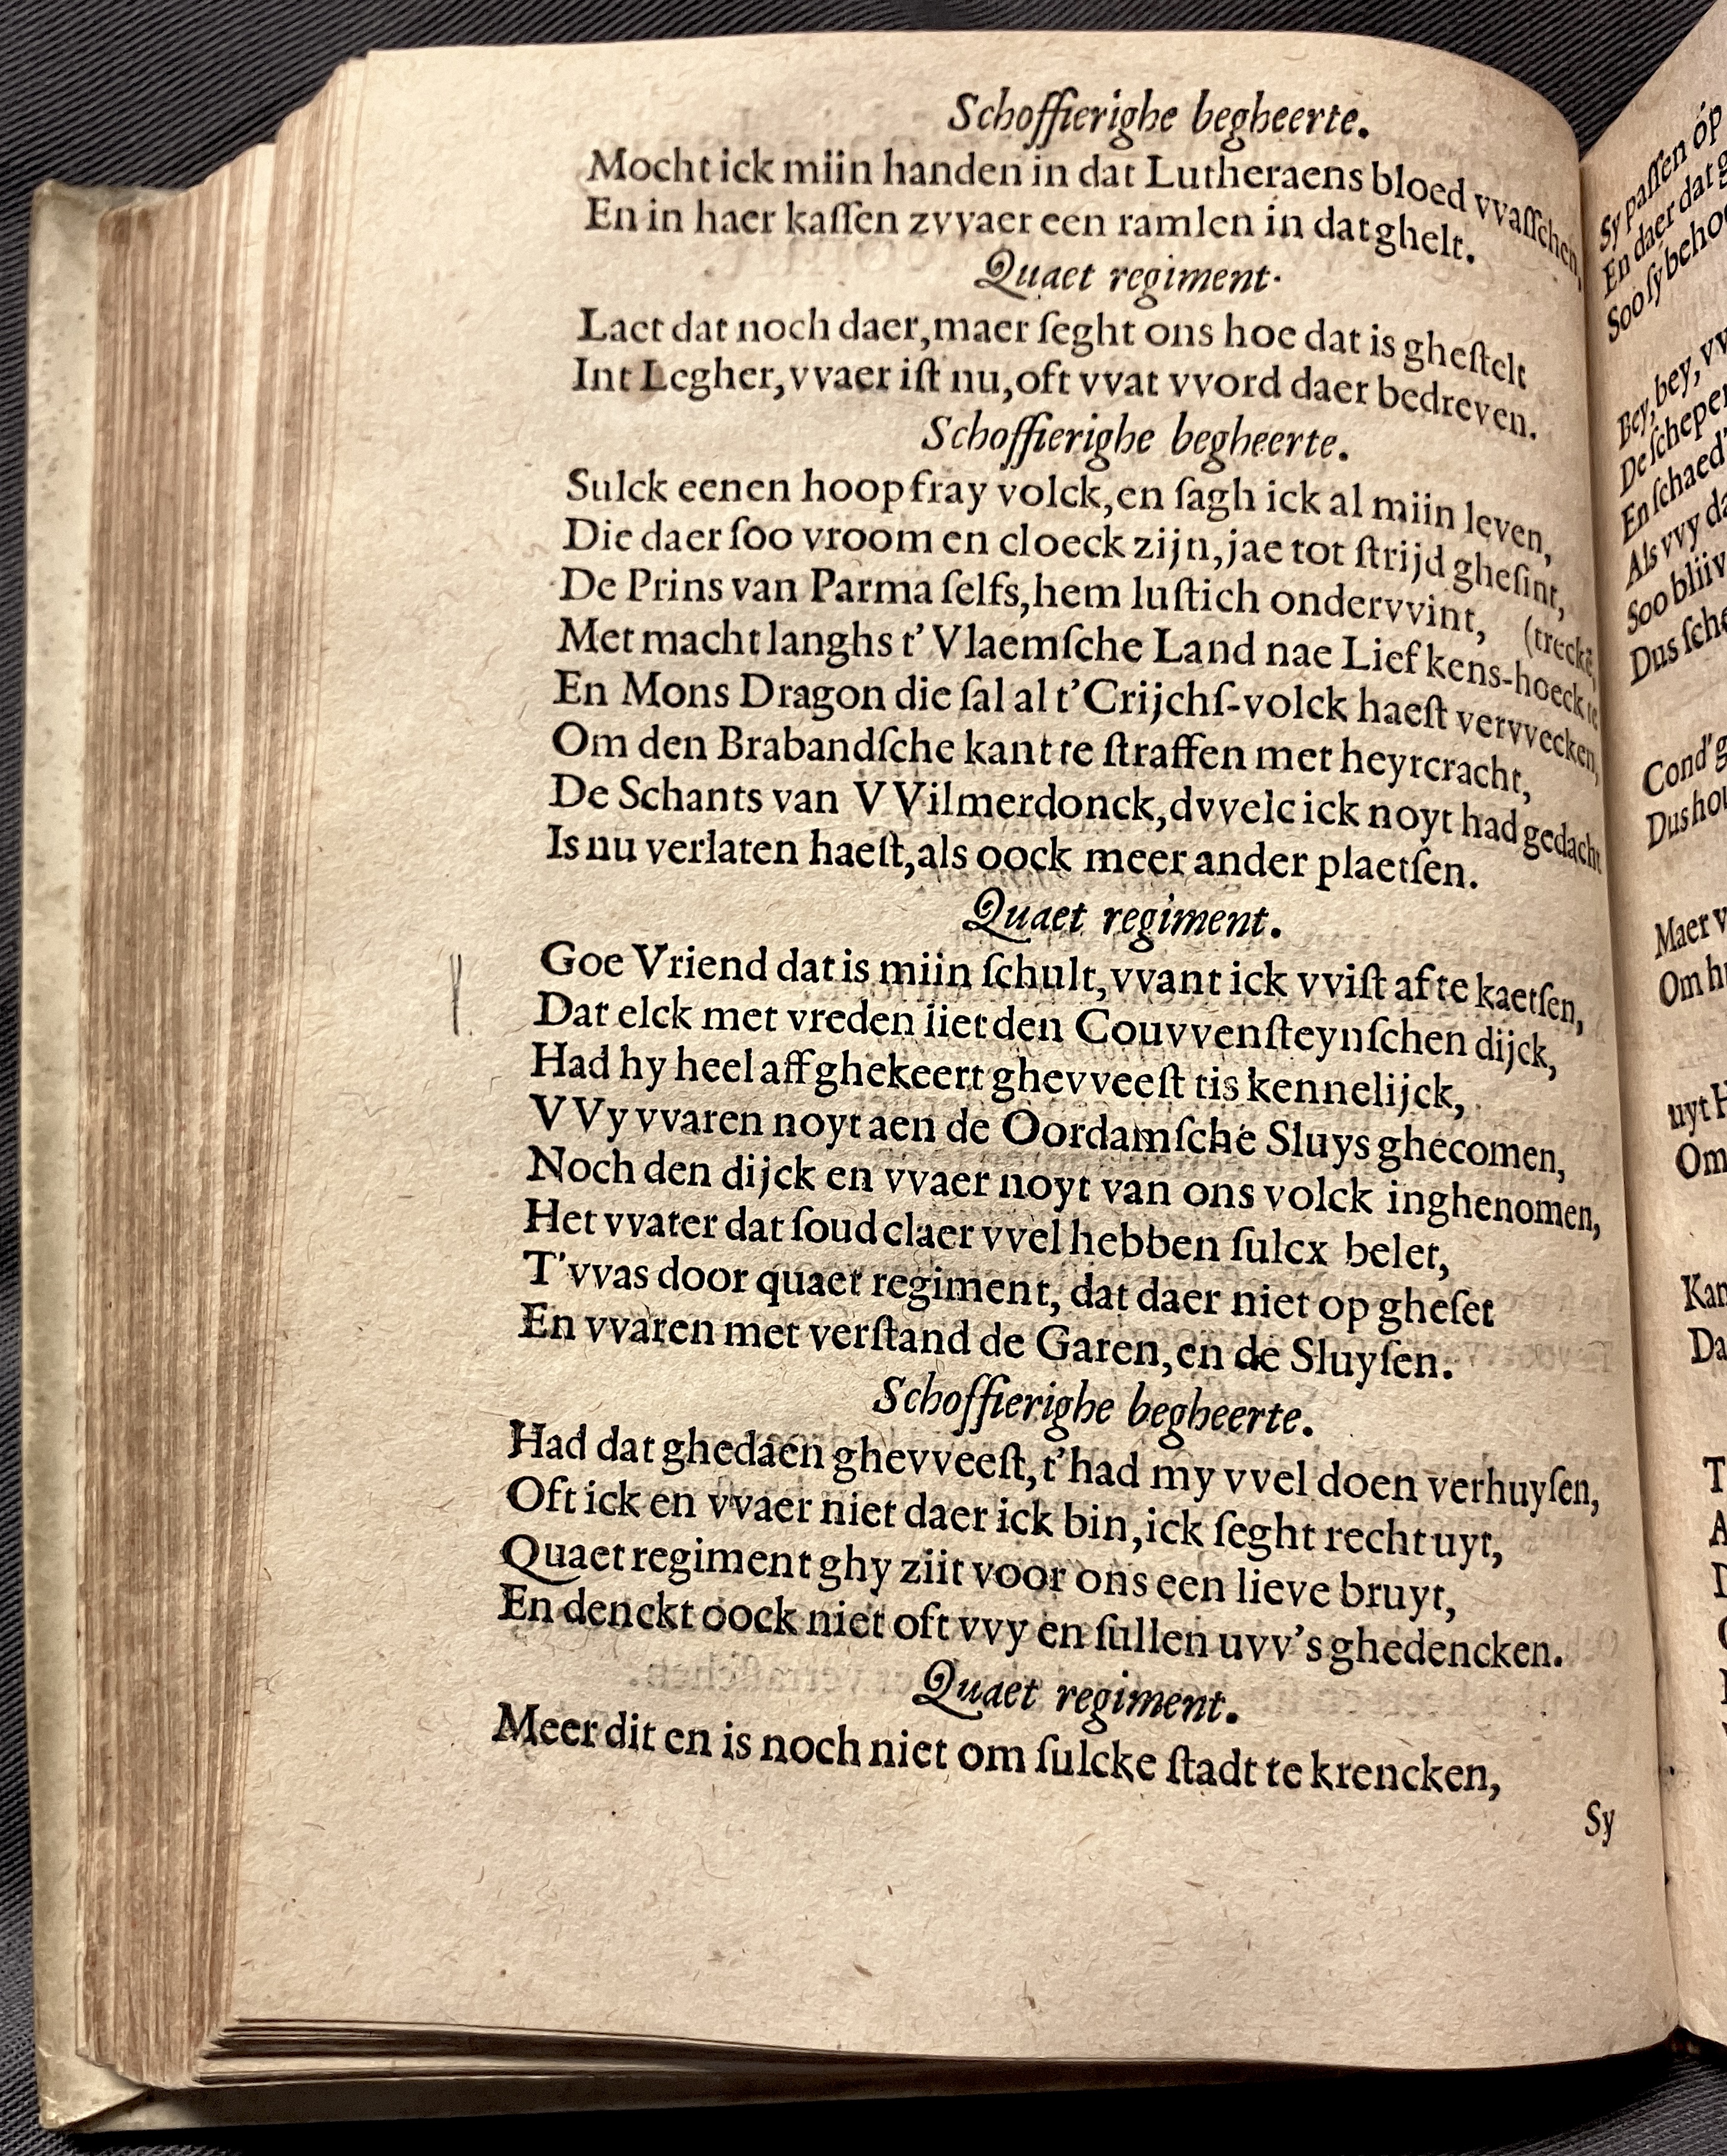 Schoffierighe begheerte.
Mocht ick miin handen in dat Lutheraens bloed vvaſſchen,
En in haer kaſſen zvvaer een ramlen in dat ghelt.
Quaet regiment.
Laet dat noch daer, maer ſeght ons hoe dat is gheſtelt
Int Legher, vvaer iſt nu, oft vvat vvord daer bedreven.
Schoffierighe begheerte.
Sulck eenen hoop fray volck, en ſagh ick al miin leven,
Die daer ſoo vroom en cloeck zijn, jae tot ſtrijd gheſint,
De Prins van Parma ſelfs, hem luſtich ondervvint,
(treckē,
Met macht langhs t'Vlaemſche Land nae Liefkens-hoeck te
En Mons Dragon die ſal al t'Crijchſ-volck haeſt vervvecken,
Om den Brabandſche kant te ſtraffen met heyrcracht,
De Schants van VVilmerdonck, dvvelc ick noyt had gedacht
Is nu verlaten haeſt, als oock meer ander plaetſen.
Quaet regiment.
Goe Vriend dat is miin ſchult, vvant ick vviſt af te kaetſen,
Dat elck met vreden liet den Couvvenſteynſchen dijck,
Had hy heel aff ghekeert ghevveeſt tis kennelijck,
VVy vvaren noyt aen de Oordamſche Sluys ghecomen,
Noch den dijck en vvaer noyt van ons volck inghenomen,
Het vvater dat ſoud claer vvel hebben ſulcx belet,
T'vvas door quaet regiment, dat daer niet op gheſet
En vvaren met verſtand de Garen, en de Sluyſen.
Schoffierighe begheerte.
Had dat ghedaen ghevveeſt, t'had my vvel doen verhuyſen,
Oft ick en vvaer niet daer ick bin, ick ſeght recht uyt,
Quaet regiment ghy ziit voor ons een lieve bruyt,
En denckt oock niet oft vvy en ſullen uvv's ghedencken.
Quaet regiment.
Meer dit en is noch niet om ſulcke ſtadt te krencken,
Sy
Sy paſſen op
En daer dat
Soo ſy
Bey, bey,
De
En
Als vvy
Soo
Dus
Cond'
Dus
Maer
Om
uyt
Om